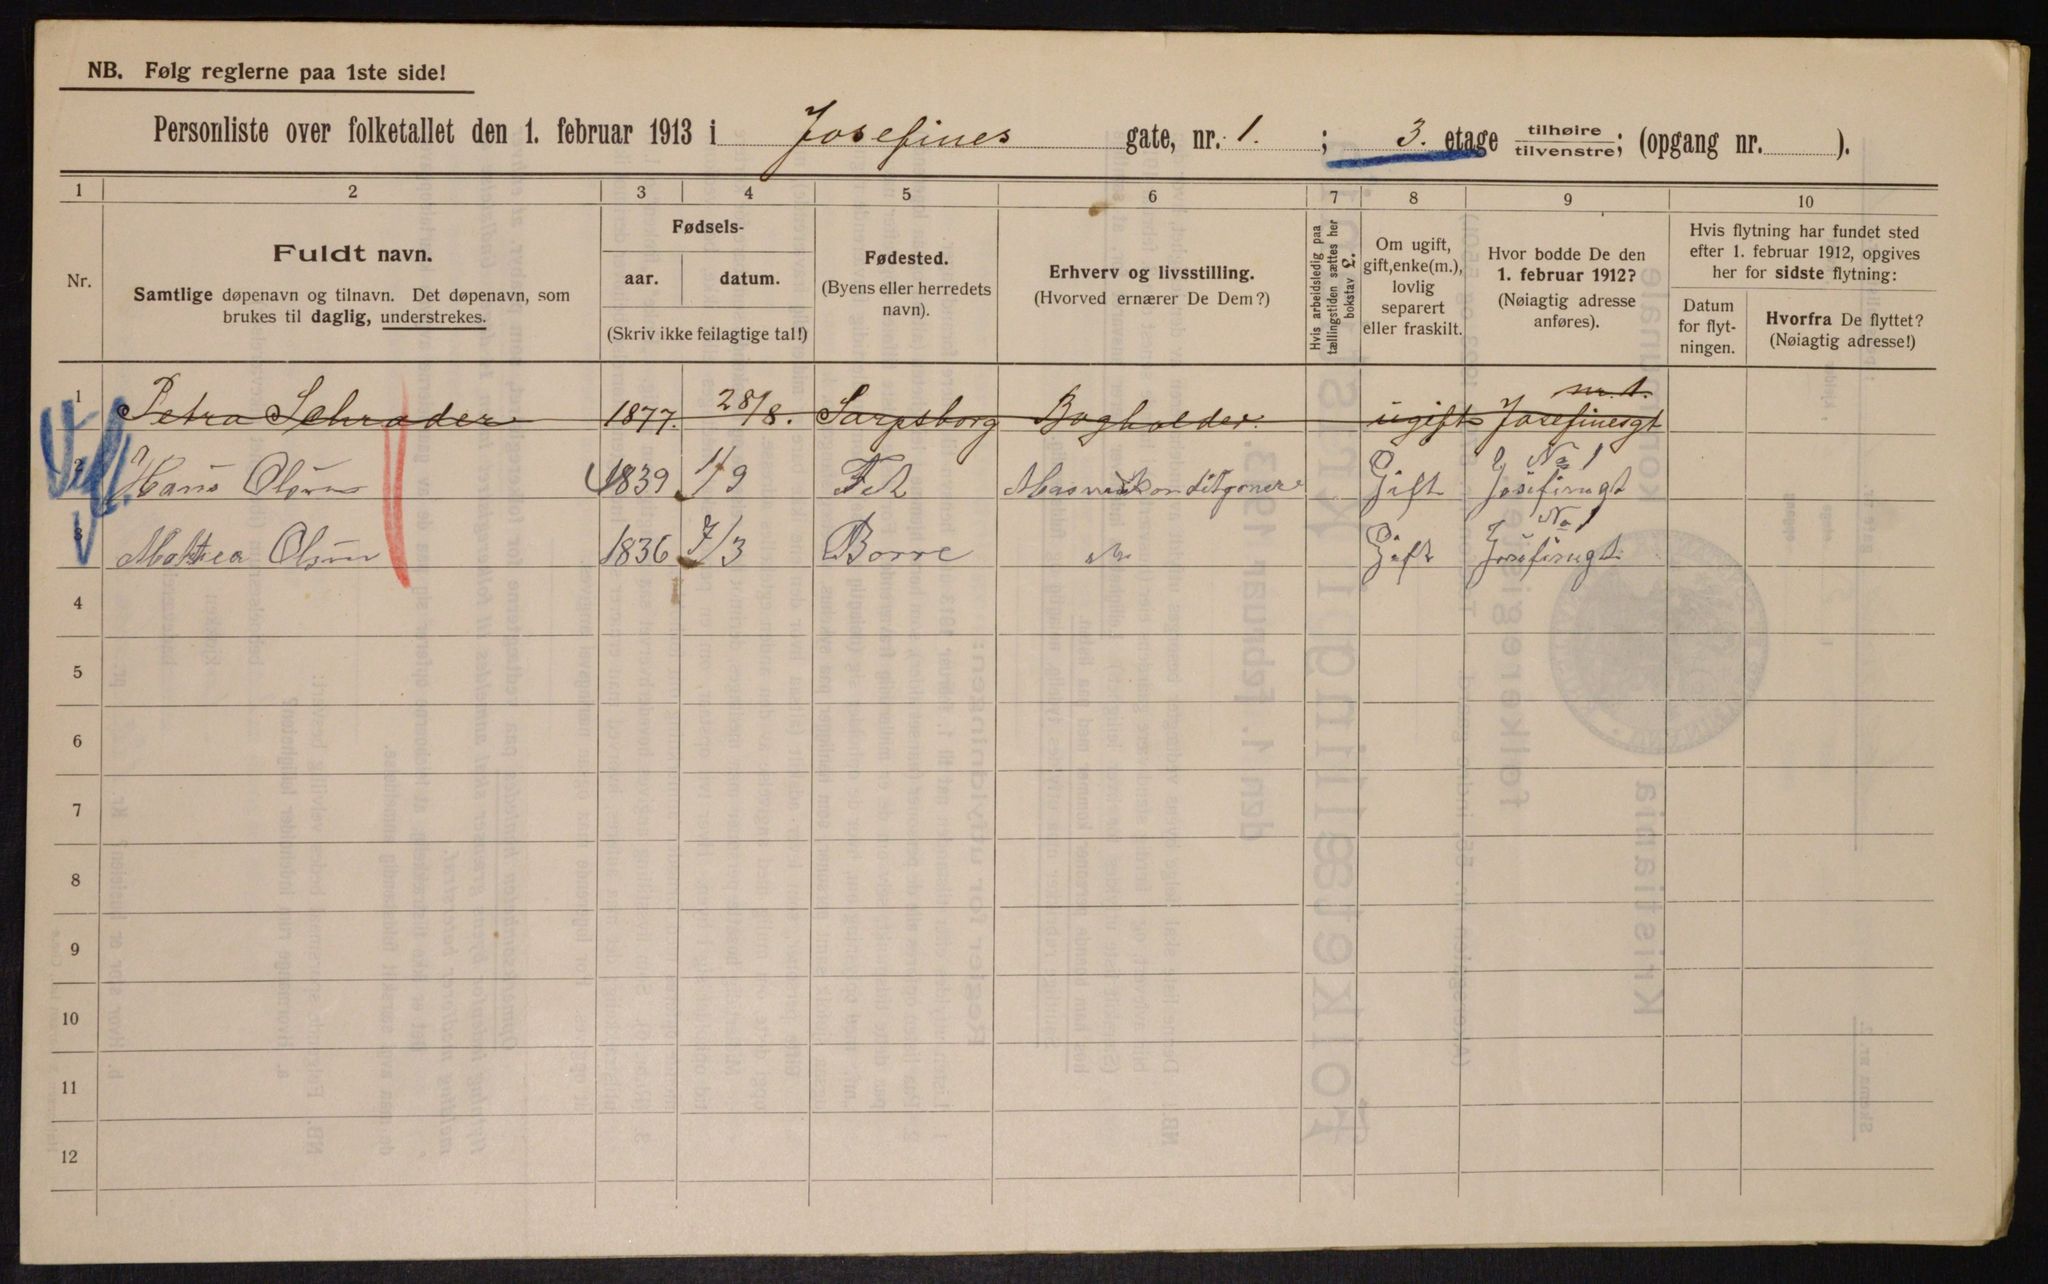 NB. Følg reglerne paa 1ste side!
Personliste over folketallet den 1. februar 1913 i Josefines gate, nr. 1. ; 3. etage tilhøire tilvenstre; (opgang nr. ).
1 2 3 4 5 6 7 8 9 10
Nr.
Fuldt navn.
Samtlige døpenavn og tilnavn. Det døpenavn, som
brukes til daglig, understrekes.
Fødsels-
aar. datum.
(Skriv ikke feilagtige tal!)
Fødested.
(Byens eller herredets
navn).
Erhverv og livsstilling.
(Hvorved ernærer De Dem?)
Hvis arbeidsledig paa
tællingstiden sættes her
bokstav L.
Om ugift,
gift, enke(m.),
lovlig
separert
eller fraskilt.
Hvor bodde De den
1. februar 1912?
(Nøiagtig adresse
anføres).
Hvis flytning har fundet sted
efter 1. februar 1912, opgives
her for sidste flytning:
Datum
for flyt-
ningen.
Hvorfra De flyttet?
(Nøiagtig adresse!)
1 Petra Schrader 1877. 28/8. Sarpsborg Bogholder. ugift Josefinesgt nr. 1.
2 Hans Olsen 1839 1/9 Fet Gift Josefinegt No 1
3 Mathea Olsen 1836 7/3 Borre Gift Josefinegt No 1
4
5
6
7
8
9
10
11
12